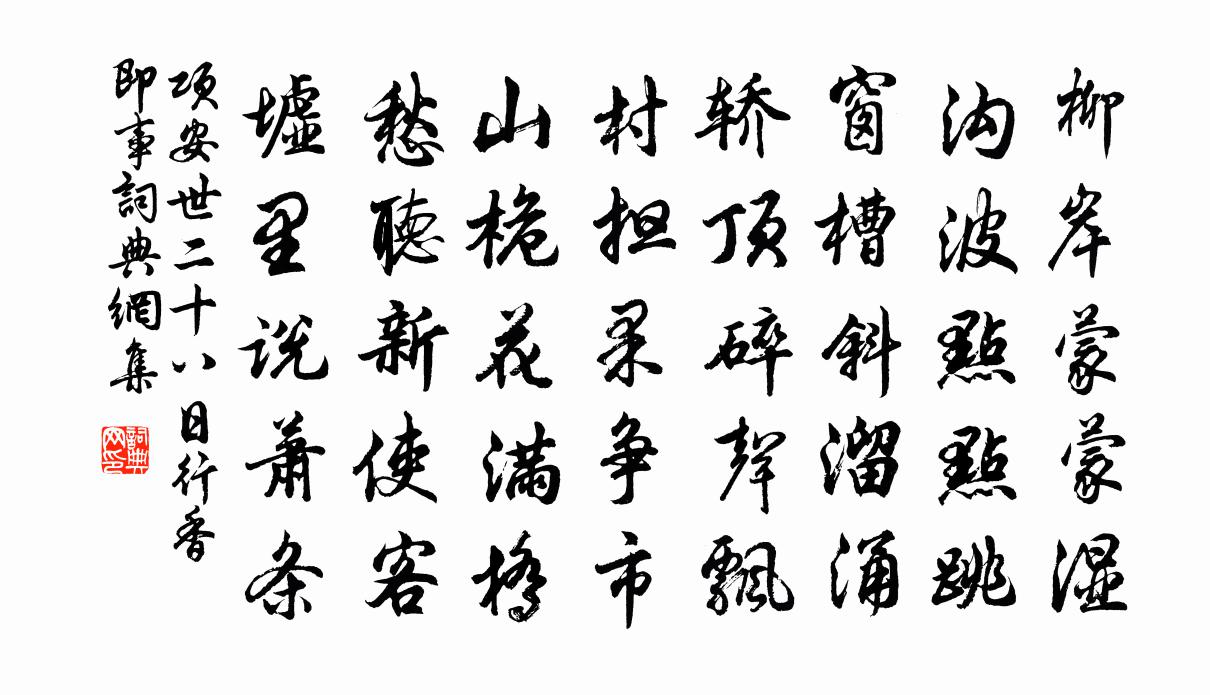 柳岸蒙蒙湿
沟波點點跳
窗槽斜溜涌
轿顶碎聲飄
村担果争市
山桅花满橋
愁聽新使客
墟里说萧条
项安世二十八日行香
即事詞典網集
詞典网印